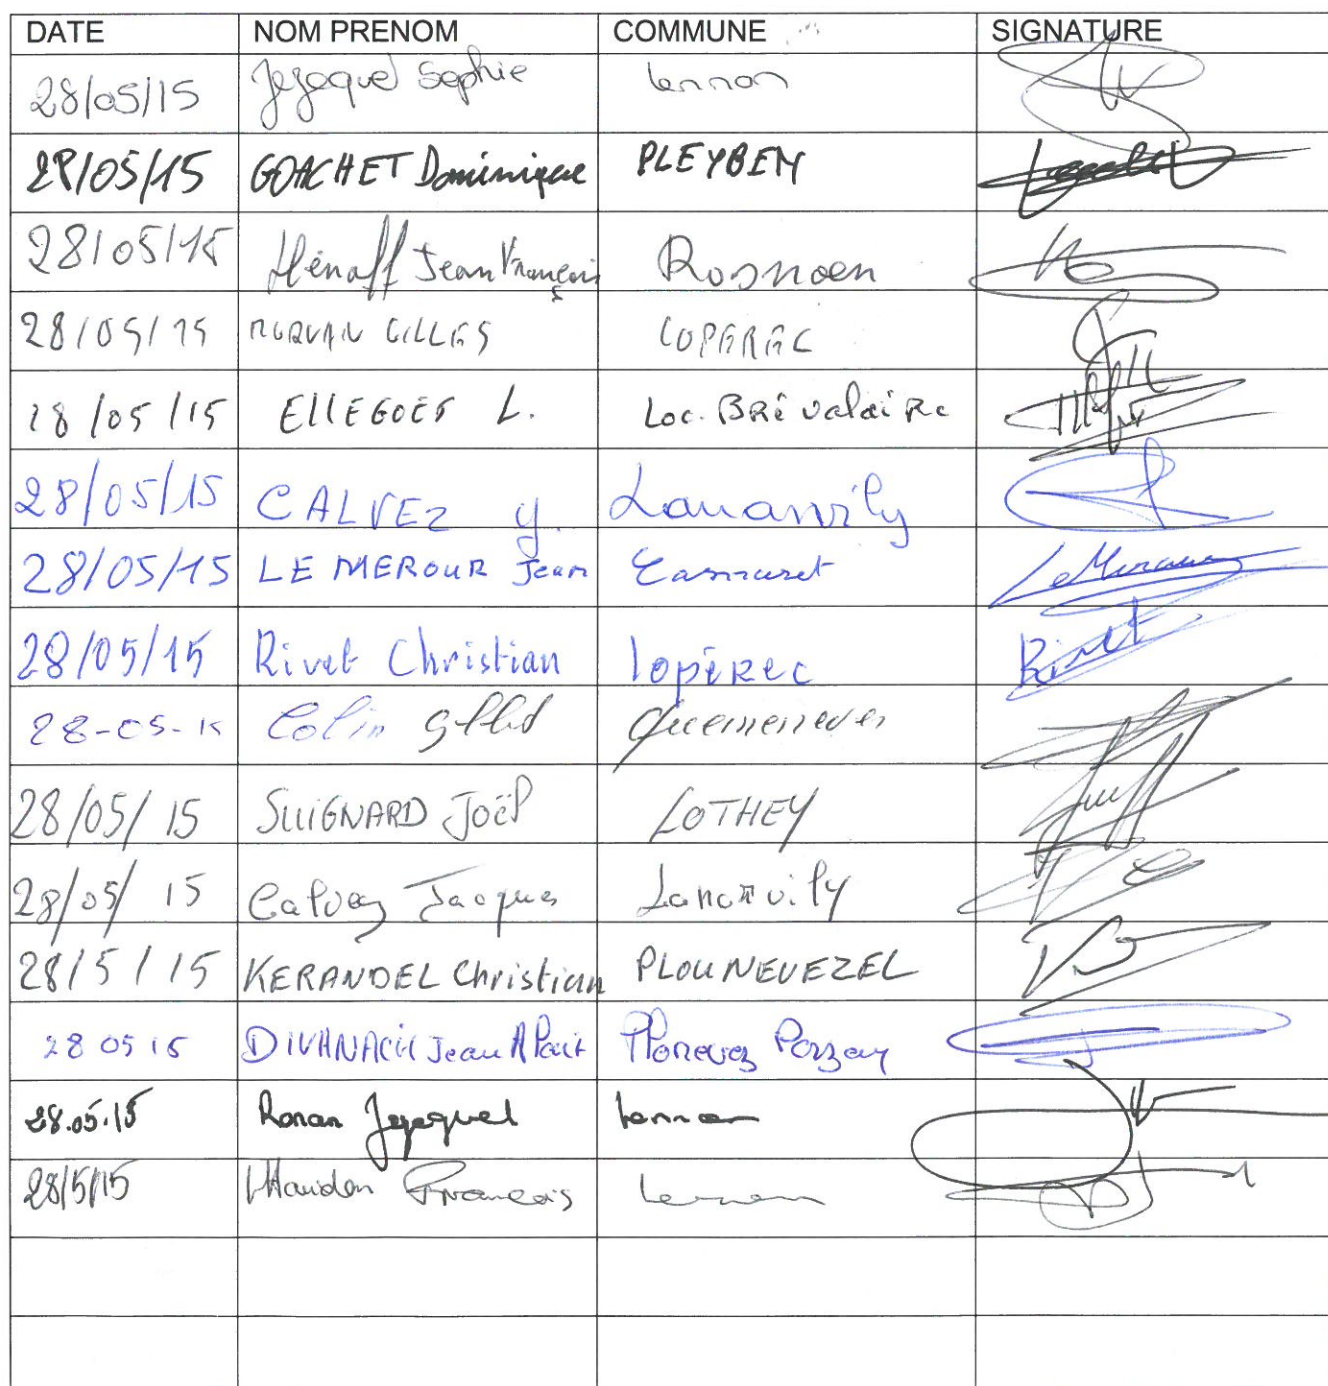 DATE NOM PRENOM COMMUNE SIGNATURE
28/05/15 Jezequel Sophie Lennon
28/05/15 GOACHET Dominique PLEYBEN
28/05/15 Hénaff Jean François Rosnoen
28/05/15 MORVAN GILLES LOPEREC
18/05/15 EllEGOET L. Loc. BRévalaiRe
28/05/15 CALVEZ y. Lananvily
28/05/15 LE MEROUR Jean Le Merour
28/05/15 Rivet Christian lopéRec Rivet
28-05-15 Colin Quemeneven
28/05/15 SUIGNARD Joël LOTHEY
28/05/15 Calvez Jacques Lananvily
28/5/15 KERANDEL Christian PLOUNEVEZEL
28 05 15 DIVANACH Jean Plonevez Porzay
28.05.15 Ronan Jezequel Lennon
28/5/15 François Lennon